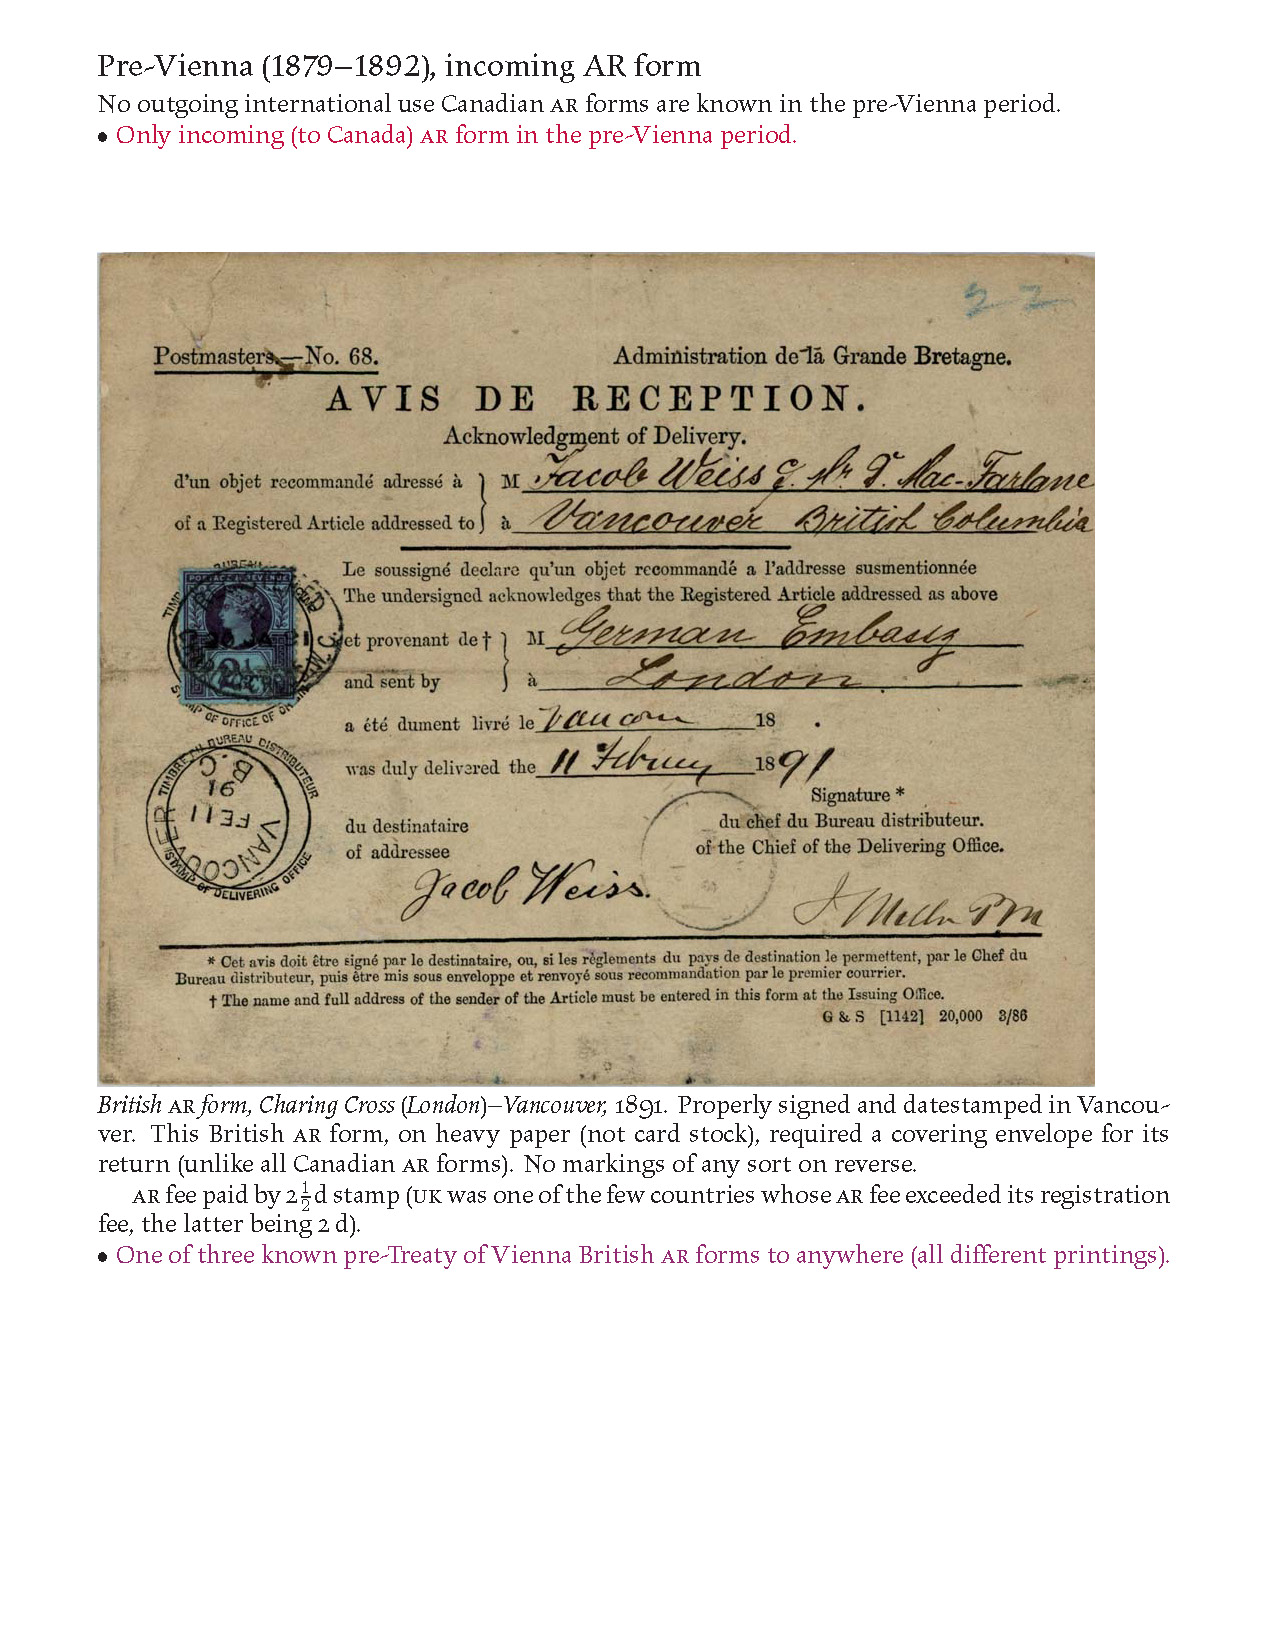 Pre-Vienna (1879–1892), incoming AR form
No outgoing international use Canadian AR forms are known in the pre-Vienna period.
• Only incoming (to Canada) AR form in the pre-Vienna period.
22
Postmasters.—No. 68.
Administration de la Grande Bretagne.
AVIS DE RECEPTION.
Acknowledgment of Delivery.
d'un objet recommandé adressé à } M Jacob Weiss Mac-Farlane
of a Registered Article addressed to } à Vancouver British Columbia
Le soussigné declare qu'un objet recommandé a l'addresse susmentionnée
The undersigned acknowledges that the Registered Article addressed as above
et provenant de † } M German Embassy
and sent by } à London
a été dument livré le Vancou 18 .
was duly delivered the 11 February 1891
POSTAGE & REVENUE
2½
STAMP OF OFFICE OF
TIMBRE DU BUREAU DISTRIBUTEUR
VANCOUVER
FE 11
91
B.C.
STAMP OF DELIVERING OFFICE
Signature *
du destinataire
du chef du Bureau distributeur.
of addressee
of the Chief of the Delivering Office.
Jacob Weiss.
* Cet avis doit être signé par le destinataire, ou, si les règlements du pays de destination le permettent, par le Chef du
Bureau distributeur, puis être mis sous enveloppe et renvoyé sous recommandation par le premier courrier.
† The name and full address of the sender of the Article must be entered in this form at the Issuing Office.
G & S [1142] 20,000 3/86
British AR form, Charing Cross (London)–Vancouver, 1891. Properly signed and datestamped in Vancou-
ver. This British AR form, on heavy paper (not card stock), required a covering envelope for its
return (unlike all Canadian AR forms). No markings of any sort on reverse.
AR fee paid by 2½d stamp (UK was one of the few countries whose AR fee exceeded its registration
fee, the latter being 2 d).
• One of three known pre-Treaty of Vienna British AR forms to anywhere (all different printings).